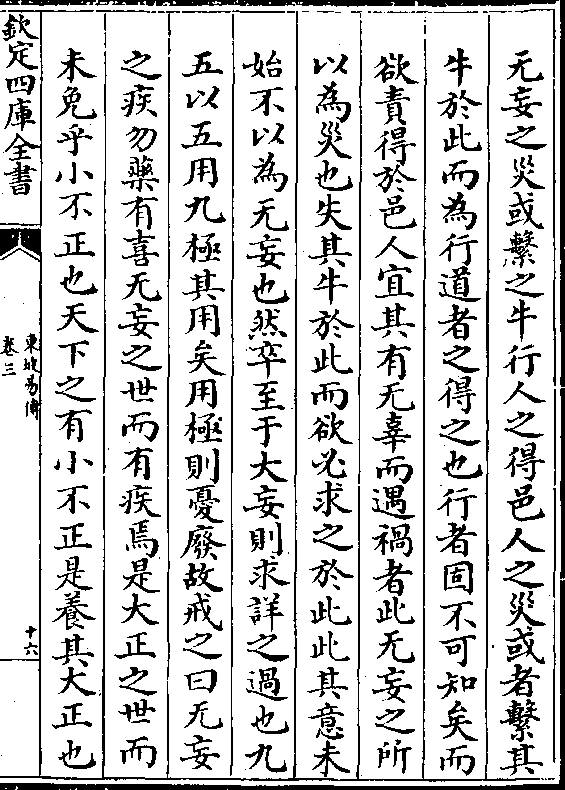 无妄之災或繫之牛行人之得邑人之災或者繫其
牛於此而為行道者之得之也行者固不可知矣而
欲責得於邑人宜其有无辜而遇禍者此无妄之所
以為災也失其牛於此而欲必求之於此此其意未
始不以為无妄也然卒至于大妄則求詳之過也九
五以五用九極其用矣用極則憂廢故戒之曰无妄
之疾勿藥有喜无妄之世而有疾焉是大正之世而
未免乎小不正也天下之有小不正是養其大正也
欽定四庫全書
東坡易傳
卷三
十六